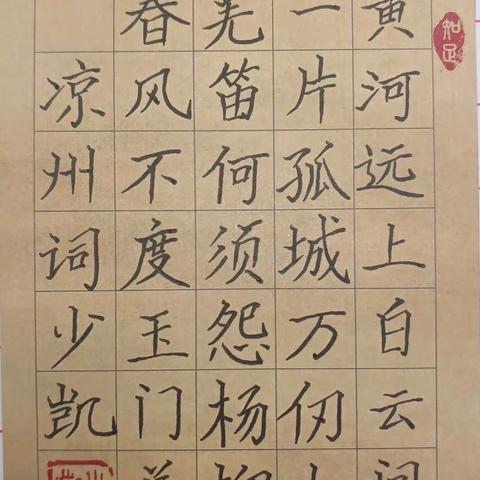 知足
黄河远上白云间
一片孤城万仞山
羌笛何须怨杨柳
春风不度玉门关
凉州词少凯